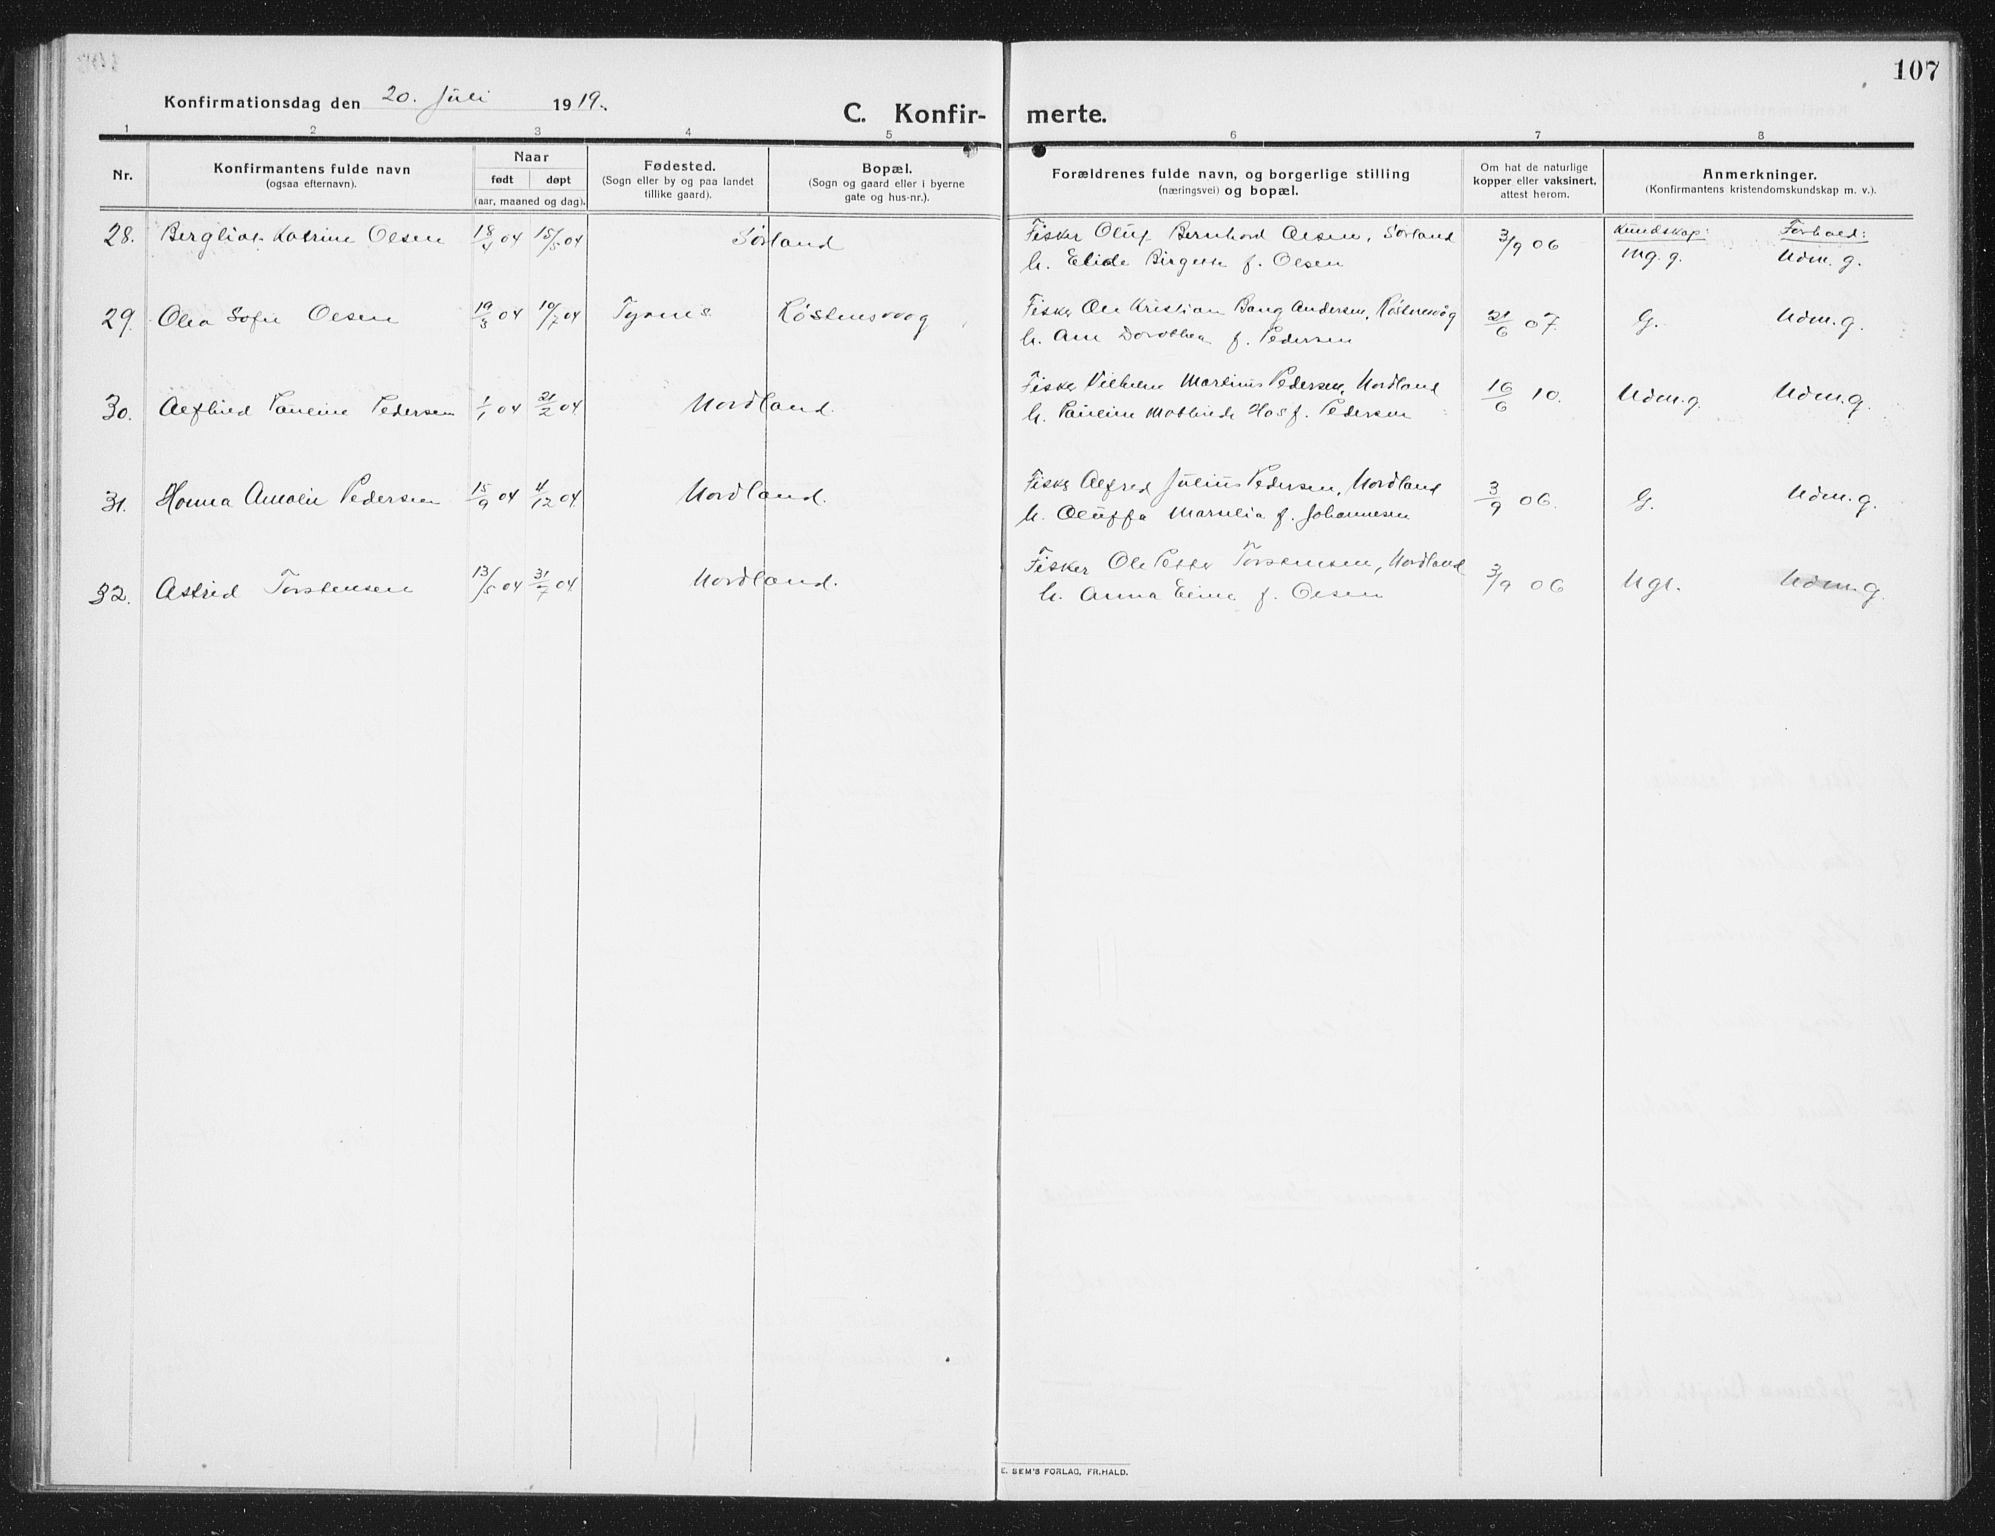 107
Konfirmationsdag den 20. Juli 1919.
C. Konfir- merte.
1 2 3 4 5 6 7 8
Nr.
Konfirmantens fulde navn
(ogsaa efternavn).
Naar
født døpt
(aar, maaned og dag).
Fødested.
(Sogn eller by og paa landet
tillike gaard).
Bopæl.
(Sogn og gaard eller i byerne
gate og hus-nr.).
Forældrenes fulde navn, og borgerlige stilling
(næringsvei) og bopæl.
Om hat de naturlige
kopper eller vaksinert,
attest herom.
Anmerkninger.
(Konfirmantens kristendomskundskap m. v.).
Kundskap: Forhold:
28. Bergliot Katrine Olsen 18/4 04 15/5 04 Sørland Fisker Oluf Bernhard Olsen, Sørland 3/9 06 Mg. g. Udm. g.
h. Elide Birgitte f. Olsen
29. Olea Sofie Olsen 19/3 04 10/7 04 Røstnesvåg Fisker Ole Kristian Bang Andersen, Røstnesvåg 21/6 07. G. Udm. g.
h. Ane Dorothea f. Pedersen
30. Alfhild Pauline Pedersen 1/1 04 21/2 04 Nordland. Fisker Vilhelm Martinus Pedersen, Nordland 16/6 10. Udm. g. Udm. g.
h. Pauline Mathilde f. Pedersen
31. Hanna Amalie Pedersen 15/9 04 4/12 04. Nordland. Fisker Alfred Julius Pedersen, Nordland 3/9 06. G. Udm. g.
h. Oluffa Marselia f. Johannesen
32. Astrid Torstensen 13/5 04 31/7 04 Nordland. Fisker Ole Petter Torstensen, Nordland 3/9 06 Mgt. Udm. g.
h. Anna Eline f. Olsen
E. SEM'S FORLAG, FR.HALD.